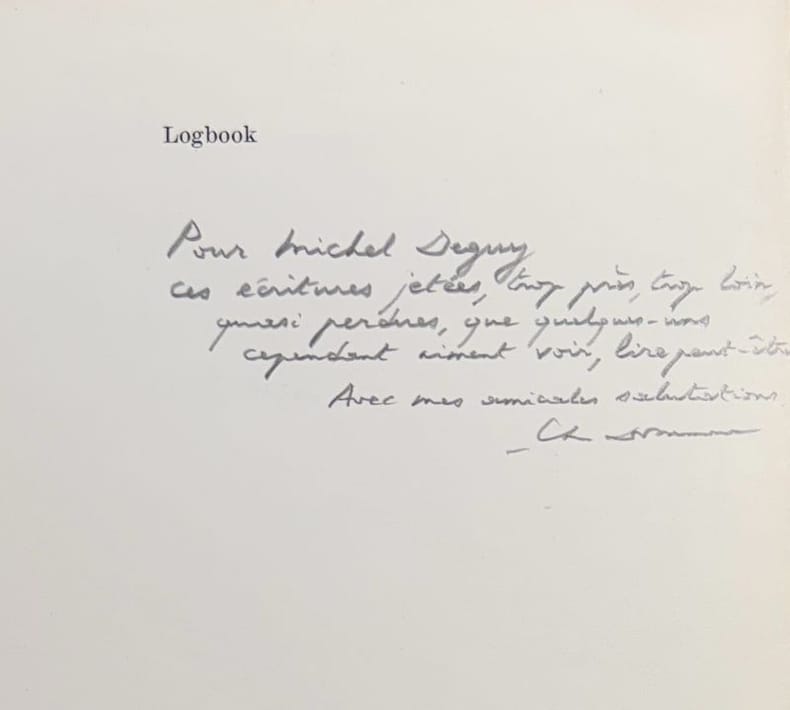 Logbook
Pour Michel Deguy
ces écritures jetées, trop près, trop loin,
quasi perdues, que quelques-uns
cependant aiment voir, lire peut-être
Avec mes amicales salutations
Ch Dotremont